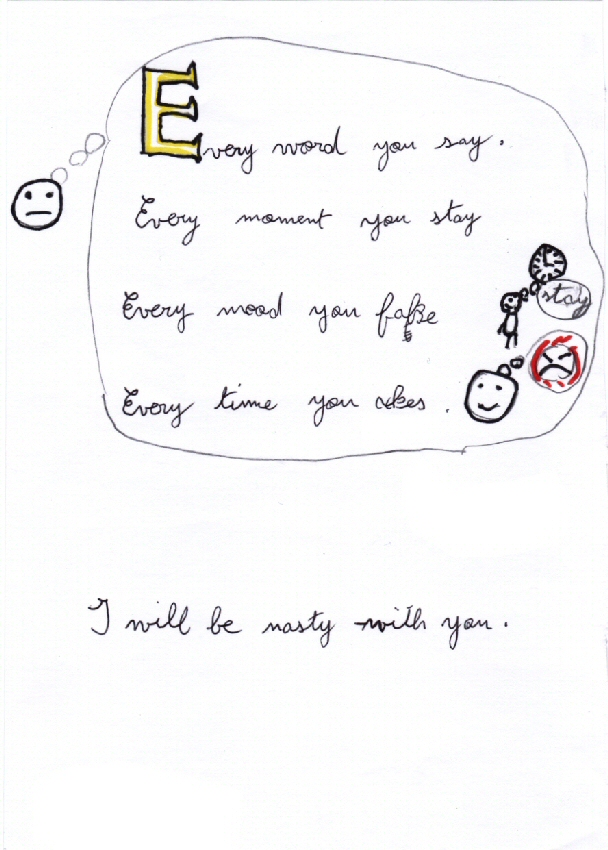 Every word you say.
Every moment you stay
stay
Every mood you fake
Every time you akes.
I will be nasty with you.